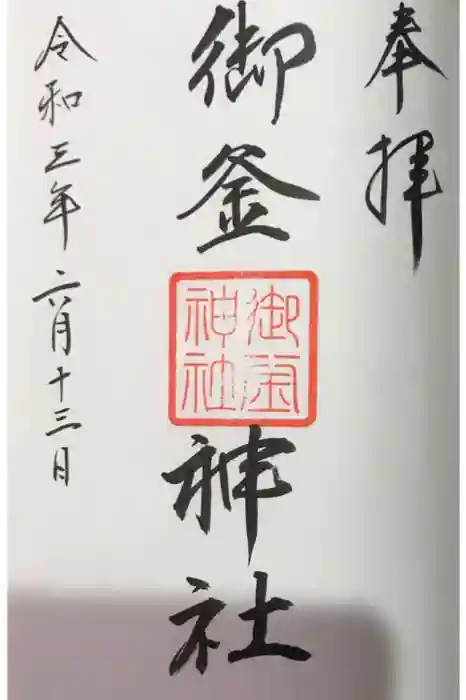 奉拝
御釜神社
御釜
神社
令和三年六月十三日